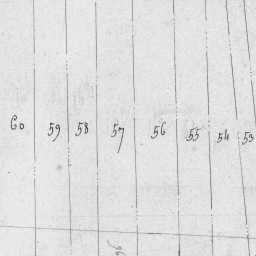 60 59 58 57 56 55 54 53